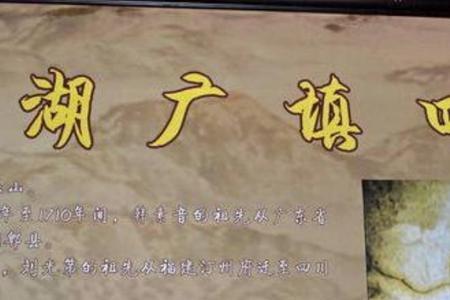 湖广填四
山。
年至1710年间，韩素音的祖先从广东省
郫县。
，刘光第的祖先从福建汀州府迁至四川